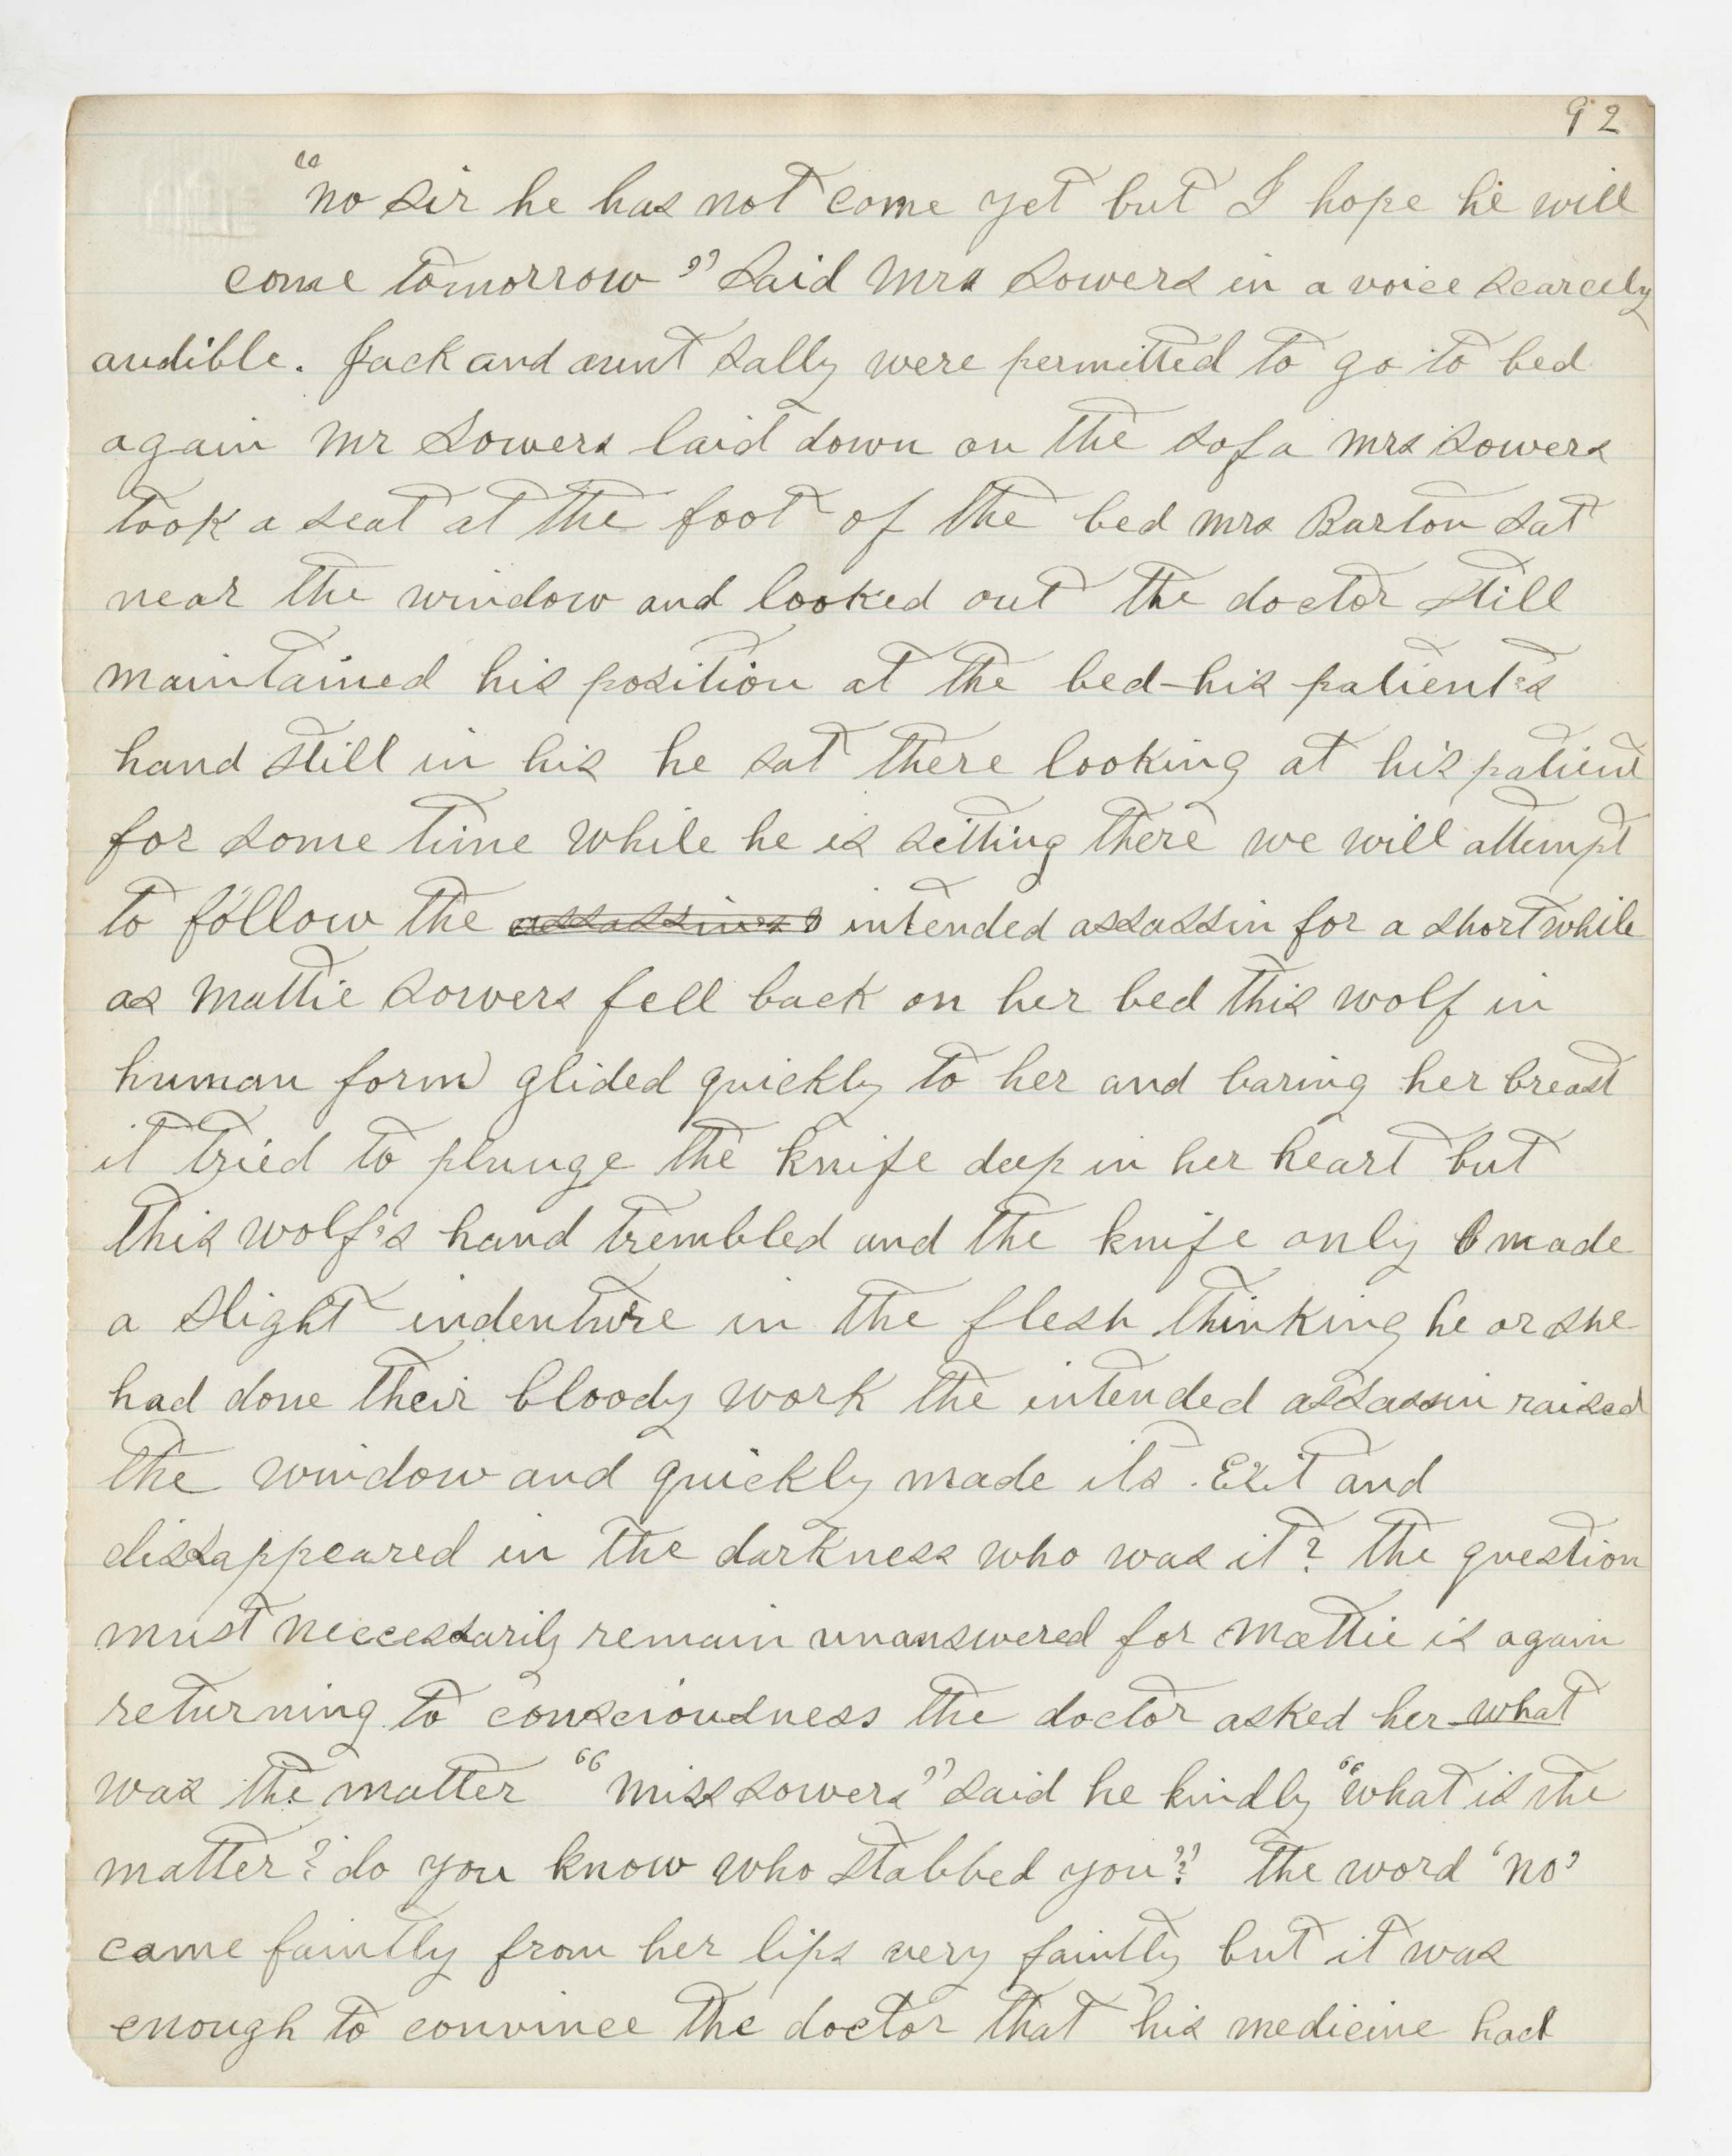 92
"no sir he has not come yet but I hope he will
come tomorrow" Said Mrs Sowers in a voice scarcely
audible. Jack and aunt Sally were permitted to go to bed
again Mr Sowers laid down on the sofa Mrs Sowers
took a seat at the foot of the bed Mrs Barton sat
near the window and looked out the doctor still
maintained his position at the bed-his patient's
hand still in his he sat there looking at his patient
for some time while he is sitting there we will attempt
to follow the assassins intended assassin for a short while
as Mattie Sowers fell back on her bed this wolf in
human form glided quickly to her and baring her breast
it tried to plunge the knife deep in her heart but
this wolf's hand trembled and the knife only made
a slight indenture in the flesh thinking he or she
had done their bloody work the intended assassin raised
the window and quickly made its Exit and
dissappeared in the darkness who was it? the question
must neccessarily remain unanswered for Mattie is again
returning to consciousness the doctor asked her what
was the matter "Miss Sowers" said he kindly "what is the
matter? do you know who stabbed you?" The word 'no'
came faintly from her lips very faintly but it was
enough to convince the doctor that his medicine had